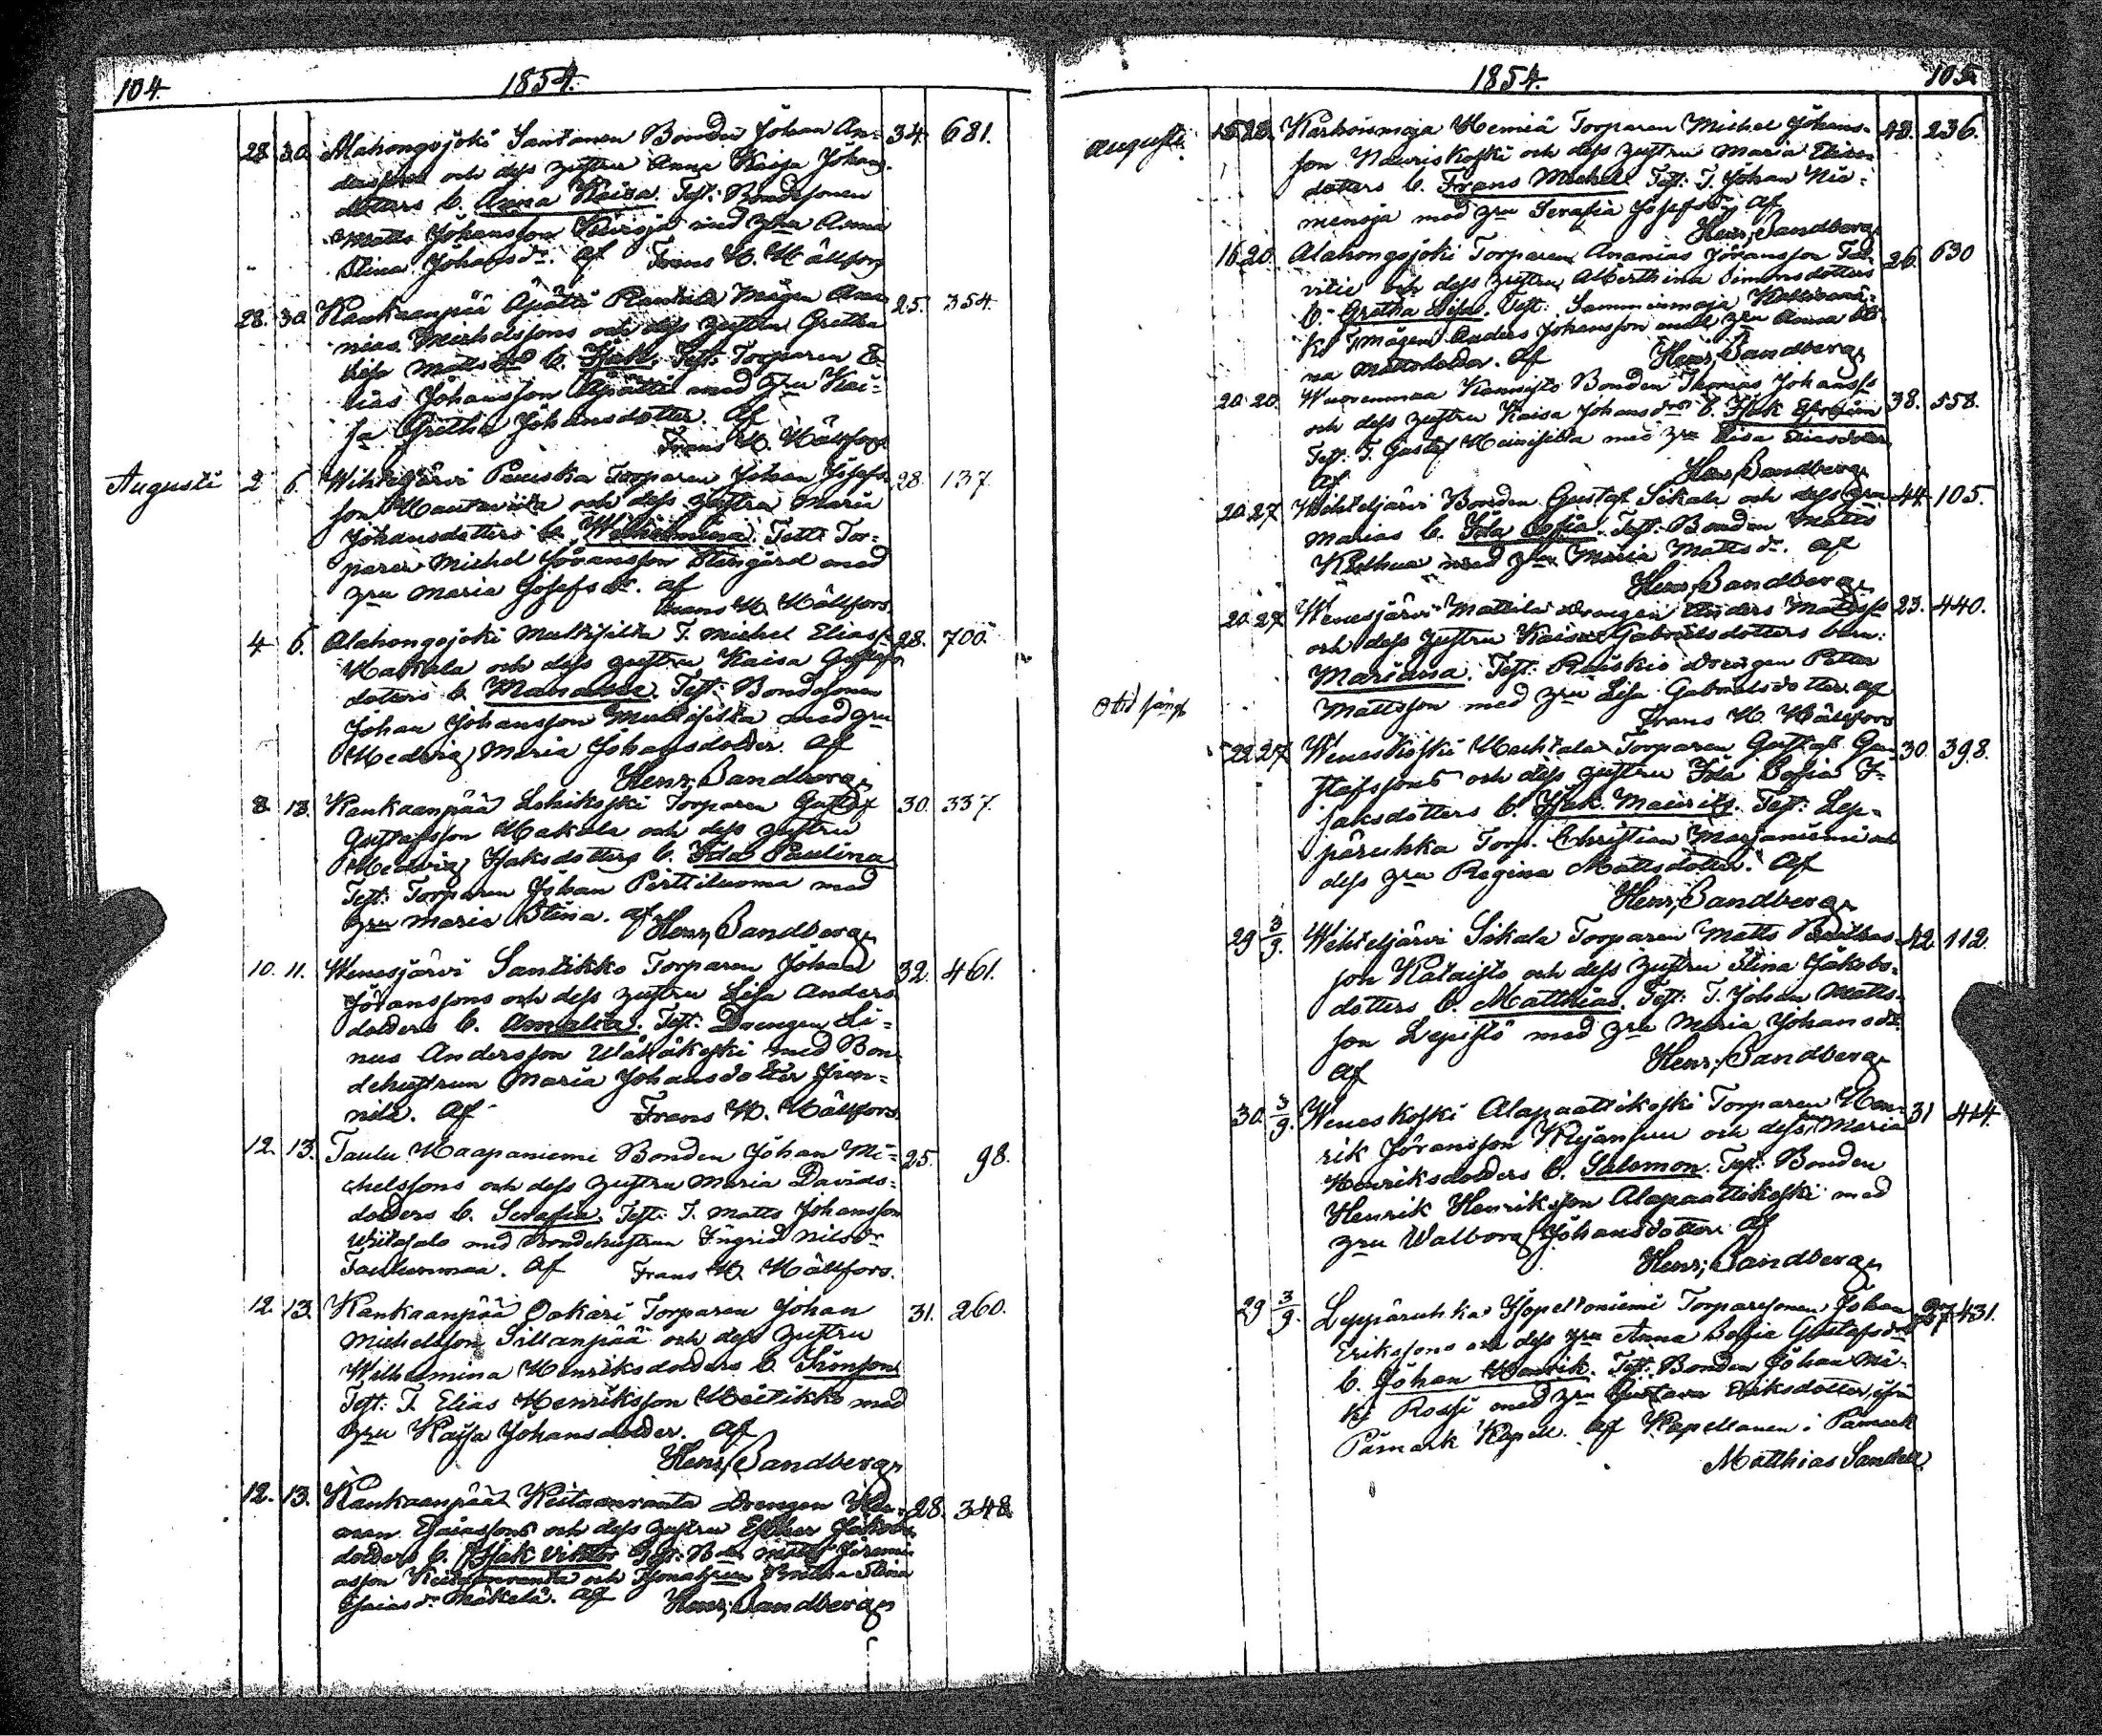 104. 1854.
28 30. Alahongojoki Santanen Bonden Johan An- 34. 681.
derssons och dess hustru Anna Kaisa Johans-
dotters b. Anna Kaisa. Test: Bondesonen
Matts Johansson med hru Anna
Stina Johansdr. Af Frans H. Hällfors
28. 30. Kankaanpää Apätti Rantala Mågen Ana- 25. 354.
nias Michelssons och dess hustru Gretha
Lisa Mattsdrs b. Isak. Test: Torparen E-
lias Johansson Apätti med hru Kai-
sa Gretha Johansdotter. Af
Frans H. Hällfors
Augusti 2 6. Wihteljärvi Peuska Torparen Johan Josefs- 28. 137.
son och dess hustru Maria
Johansdotters b. Wilhelmina. Test: Tor-
paren Michel Göransson Stengård med
hru Maria Josefsdr. af
Frans H. Hällfors
4 6. Alahongojoki Multisilta T. Michel Eliass. 28. 700.
Hakala och dess hustru Kaisa Gustafs
dotters b. Manasse. Test: Bondesonen
Johan Johansson Multisilta med hru
Hedvig Maria Johansdotter. Af
Henr. Sandberg
8. 13. Kankaanpää Lohikoski Torparen Gustaf 30. 337.
Gustafsson Hakala och dess hustru
Hedvig Isaksdotters b. Ida Paulina
Test: Torparen Johan Pirttiluoma med
hru Maria Stina. af Henr. Sandberg
10. 11. Wenesjärvi Santikko Torparen Johan 32. 461.
Göranssons och dess hustru Lisa Anders
dotters b. Amalia. Test: Drengen Li-
nus Andersson Wähäkoski med Bon-
dehustrun Maria Johansdotter
nilä. Af Frans H. Hällfors
12. 13. Taulu Haapaniemi Bonden Johan Mi- 25. 98.
chelssons och dess hustru Maria Davids-
dotters b. Serafia. Test: T. Matts Johansson
Wiitasalo med Bondehustrun Ingrid Nilsdr
Taulunmaa. Af Frans H. Hällfors.
12. 13. Kankaanpää Ookari Torparen Johan 31. 260.
Michelsson Sillanpää och dess hustru
Wilhelmina Henriksdotters b. Simson
Test: T. Elias Henriksson Heitikko med
hru Kaisa Johansdotter. Af
Henr. Sandberg
12. 13. Kankaanpää Keitaanranta Drengen Her- 28. 348.
man Esaiassons och dess hustru Esther Jakobs
dotters b. Isak Viktor Test: Matts Jeremi-
asson Keitaanranta och Stina
Esaiasdr Mäkelä. Af Henr. Sandberg
1854. 105
Augusti. 15 20. Karhoismaja Hemiä Torparen Michel Johans- 43. 236.
son Nauriskoski och dess hustru Maria
dotters b. Frans Michel. Test: T. Johan Nie-
mensja med hru Serafia Josefsdr. Af
Henr. Sandberg
16 20. Alahongojoki Torparen Ananias Göransson 26. 630
vitie och dess hustru Alberthina Simonsdotters
b. Gretha Lisa. Test: Samminmaja
ki Mågen Anders Johansson med hru Anna
na Mattsdotter. Af Henr. Sandberg
20. 20. Wuorenmaa Kannisto Bonden Thomas Johanss. 38. 558.
och dess hustru Kaisa Johansdrs b. Isak Efraim
Test: T. Gustaf med hru Lisa Eliasdotter
Af Henr. Sandberg
20 27 Wihteljärvi Bonden Gustaf Sikala och dess hru 44. 105.
Marias b. Ida Sofia. Test: Bonden Matts
Kelhua med hru Maria Mattsdr. af
Henr. Sandberg
20. 27. Wenesjärvi Mattila Drengen Anders Mattss. 23. 440.
och dess hustru Kaisa Gabrielsdotters barn:
Mariana. Test: Rauskio Drengen Petter
Mattsson med hru Lisa Gabrielsdotter. af
Frans H. Hällfors
22 27 Weneskoski Hachtala Torparen Gustaf Gu- 30. 398.
stafssons och dess hustru Ida Sofia I-
saksdotters b. Isak Mauritz. Test: Lep-
päruhka Torp. Christian Marjaniemi och
dess hru Regina Mattsdotter. Af
Henr. Sandberg
29 3/9. Wihteljärvi Sikala Torparen Matts 42. 112.
son Kataisto och dess hustru Stina Jakobs-
dotters b. Matthias. Test: T. Johan Matts-
son Lepistö med hru Maria Johansdr
Af Henr. Sandberg
30. 3/9. Weneskoski Alapaattikoski Torparen Hen- 31 414.
rik Göransson och dess hru Maria
Henriksdotters b. Salomon. Test: Bonden
Henrik Henriksson Alapaattikoski med
hru Walborg Johansdotter. Af
Henr. Sandberg
29 3/9. Leppäruhka Hopeltoniemi Torparesonen Johan 431.
Erikssons och dess hru Anna Sofia Gustafsdrs
b. Johan Henrik. Test: Bonden Johan
ki Rossi med hru Gustava Eriksdotter ifrån
Påmark Kapell. Af Kapellanen i Påmark
Matthias Sandell.